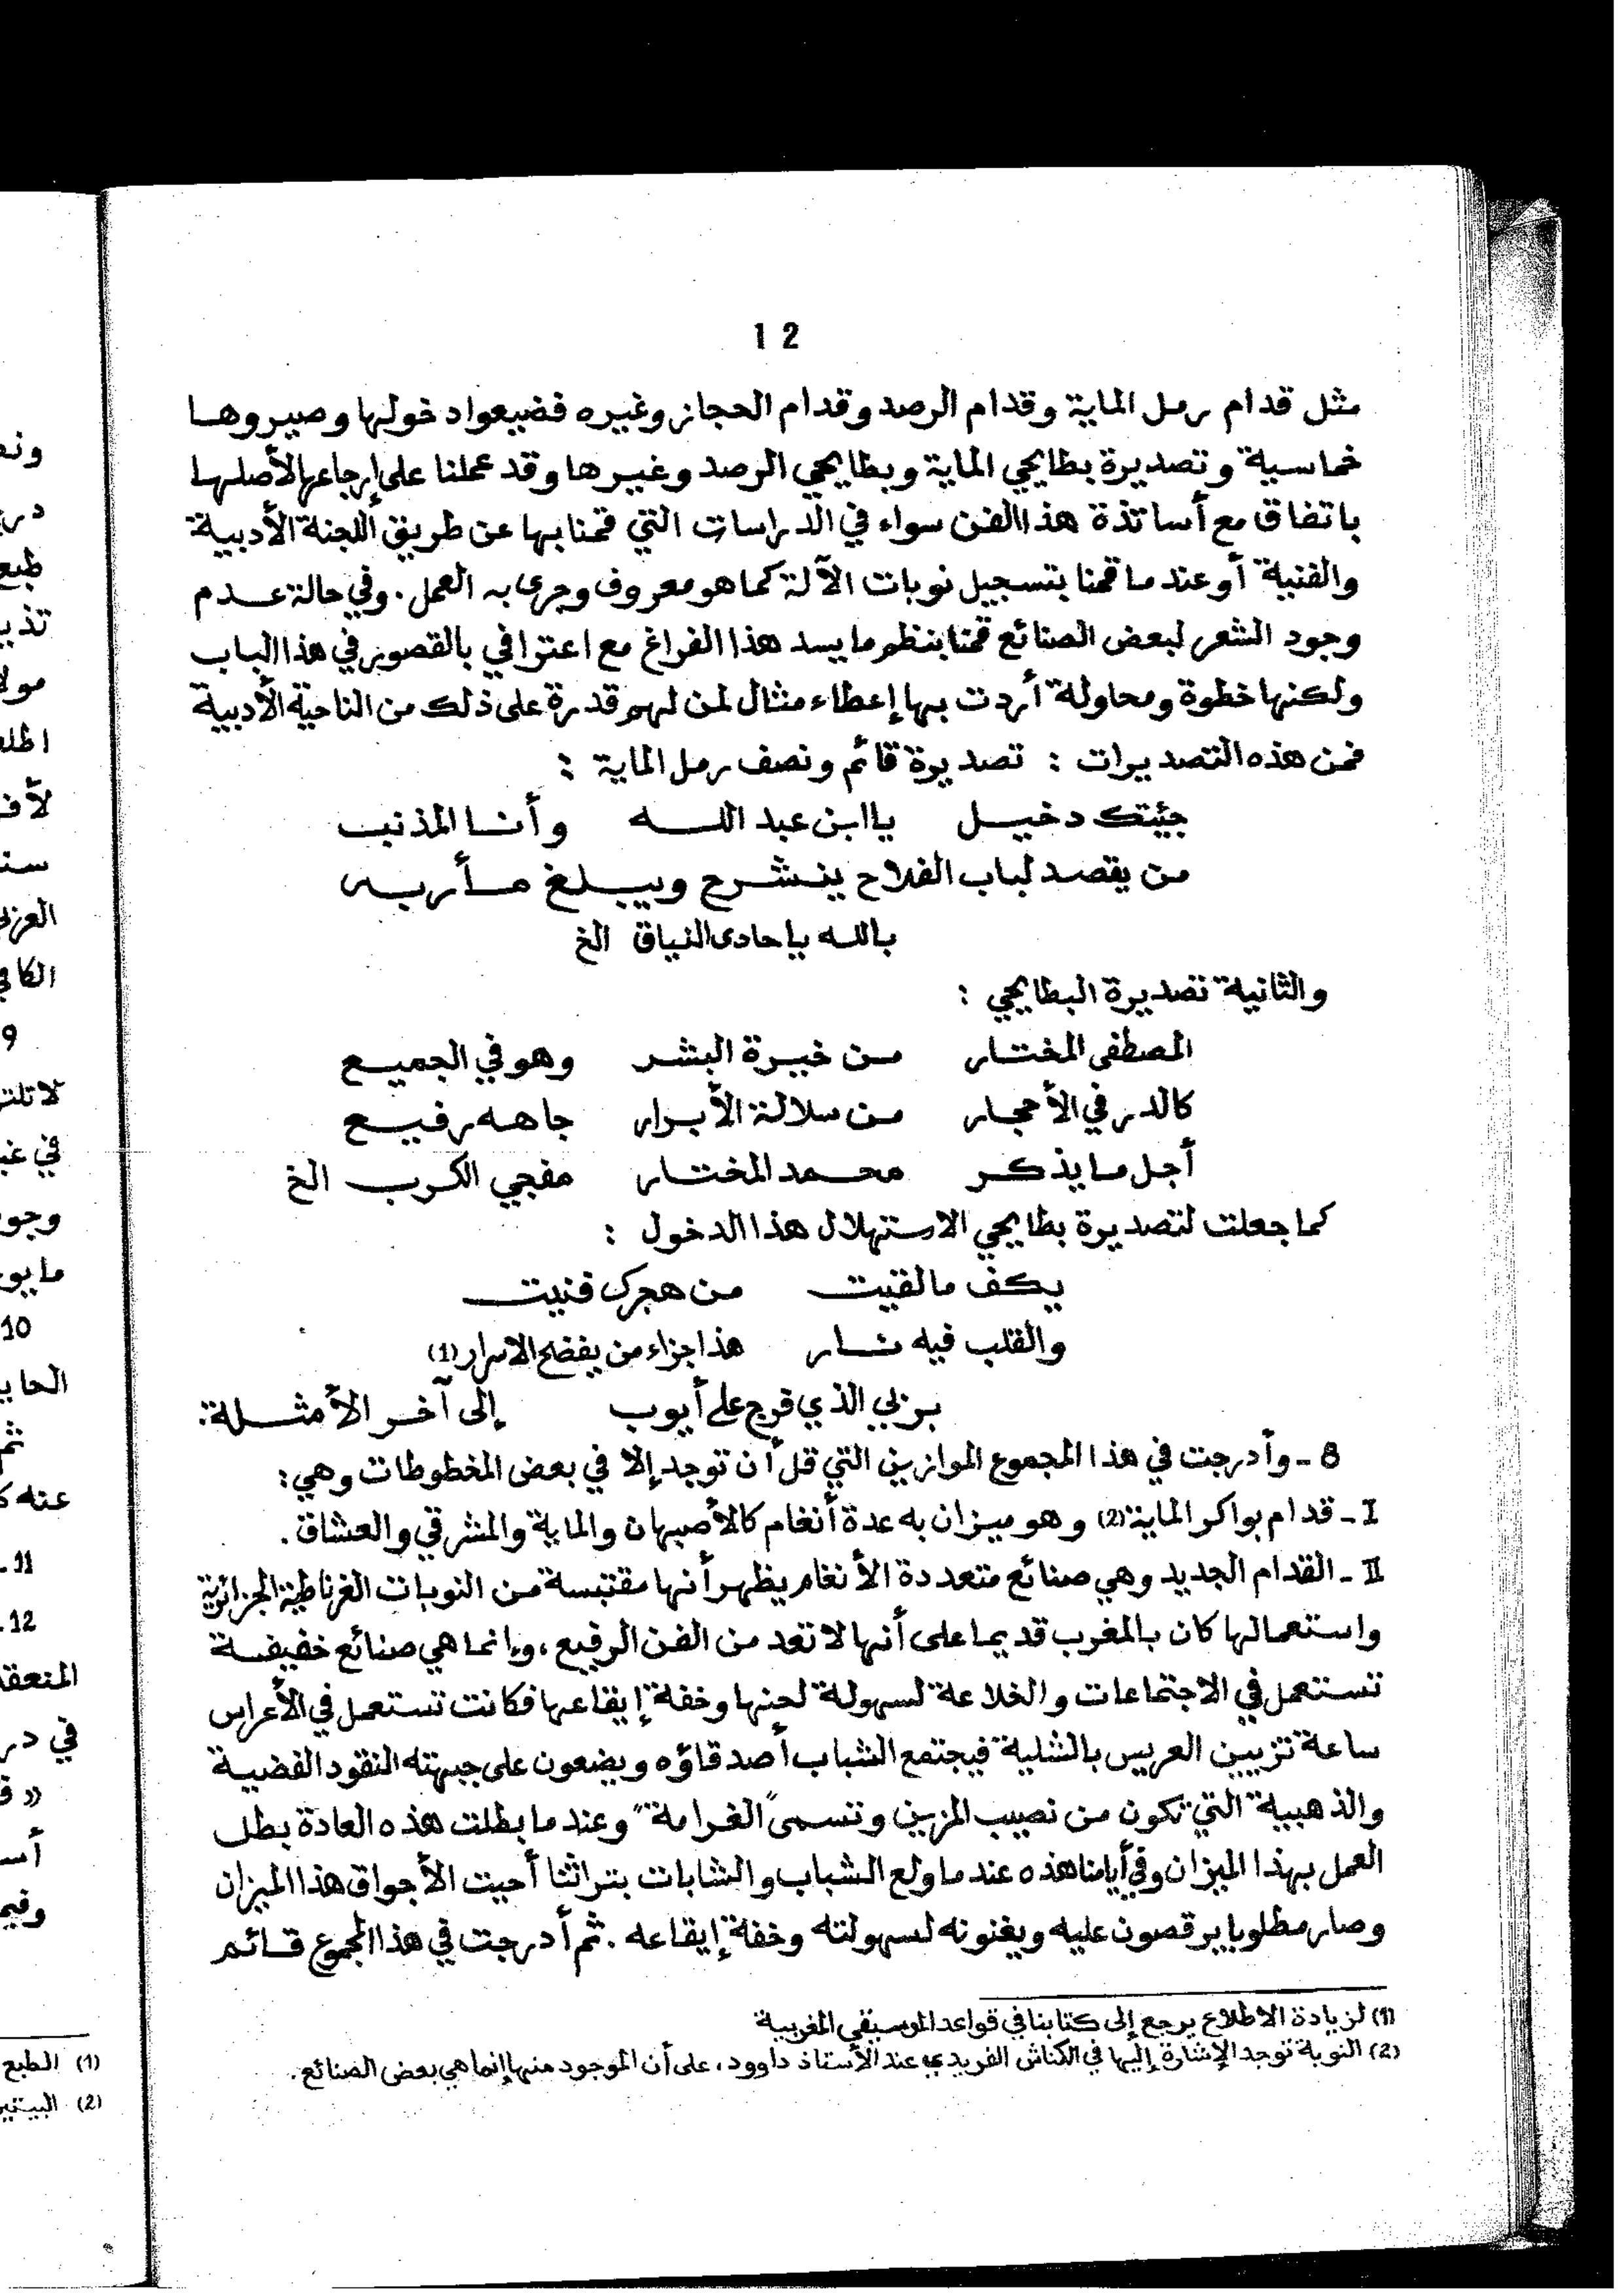 12
مثل قدام رمل الماية وقدام الرصد وقدام الحجاز وغيره فضيعوا دخولها وصيروها
خماسية وتصديرة بطايحي الماية وبطايحي الرصد وغيرها وقد عملنا على إرجاعها لأصلها
باتفاق مع أساتذة هذا الفن سواء في الدراسات التي قمنا بها عن طريق اللجنة الأدبية
والفنية أو عندما قمنا بتسجيل نوبات الآلة كما هو معروف وجرى به العمل. وفي حالة عدم
وجود الشعر لبعض الصنائع قمنا بنظم ما يسد هذا الفراغ مع اعترافي بالقصور في هذا الباب
ولكنها خطوة ومحاولة أردت بها إعطاء مثال لمن لهم قدرة على ذلك من الناحية الأدبية
فمن هذه التصديرات : تصديرة قائم ونصف رمل الماية :
جئتك دخيل يا ابن عبد الله وأنا المذنب
من يقصد لباب الفلاح ينشرح ويبلغ مأربه
بالله يا حادى النياق الخ
والثانية تصديرة البطايحي :
المصطفى المختار من خيرة البشر وهو في الجميع
كالدر في الأحجار من سلالة الأبرار جاهه رفيع
أجل ما يذكر محمد المختار مفجي الكرب الخ
كما جعلت لتصديرة بطايحي الاستهلال هذا الدخول :
يكف ما لقيت من هجرك فنيت
والقلب فيه نار هذا جزاء من يفضح الاسرار (1)
بربي الذي فرج على أيوب إلى آخر الأمثلة:
8 - وأدرجت في هذا المجموع الموازين التي قل أن توجد إلا في بعض المخطوطات وهي:
I - قدام بواكر الماية (2) وهو ميزان به عدة أنغام كالأصبهان والماية والمشرقي والعشاق.
II - القدام الجديد وهي صنائع متعددة الأنغام يظهر أنها مقتبسة من النوبات الغرناطية الجزائرية
واستعمالها كان بالمغرب قديما على أنها لا تعد من الفن الرفيع، وإنما هي صنائع خفيفة
تستعمل في الاجتماعات والخلاعة لسهولة لحنها وخفة إيقاعها فكانت تستعمل في الأعراس
ساعة تزيين العريس بالشلية فيجتمع الشباب أصدقاؤه ويضعون على جبهته النقود الفضية
والذهبية التي تكون من نصيب المزين وتسمى "الغرامة" وعندما بطلت هذه العادة بطل
العمل بهذا الميزان وفي أيامنا هذه عندما ولع الشباب والشابات بتراثنا أحيت الأجواق هذا الميزان
وصار مطلوبا يرقصون عليه ويغنونه لسهولته وخفة إيقاعه. ثم أدرجت في هذا المجموع قائم
(1) لزيادة الاطلاع يرجع إلى كتابنا في قواعد الموسيقى المغربية
(2) النوبة توجد الإشارة إليها في الكناش الفريدي عند الأستاذ داوود، على أن الموجود منها إنما هي بعض الصنائع.
9
لا تلت
في غ
وجو
ما يو
10
الحا
ثم
عنه ك
11 -
12 -
المنعق
في در
(1) الطبع
(2) البيتي